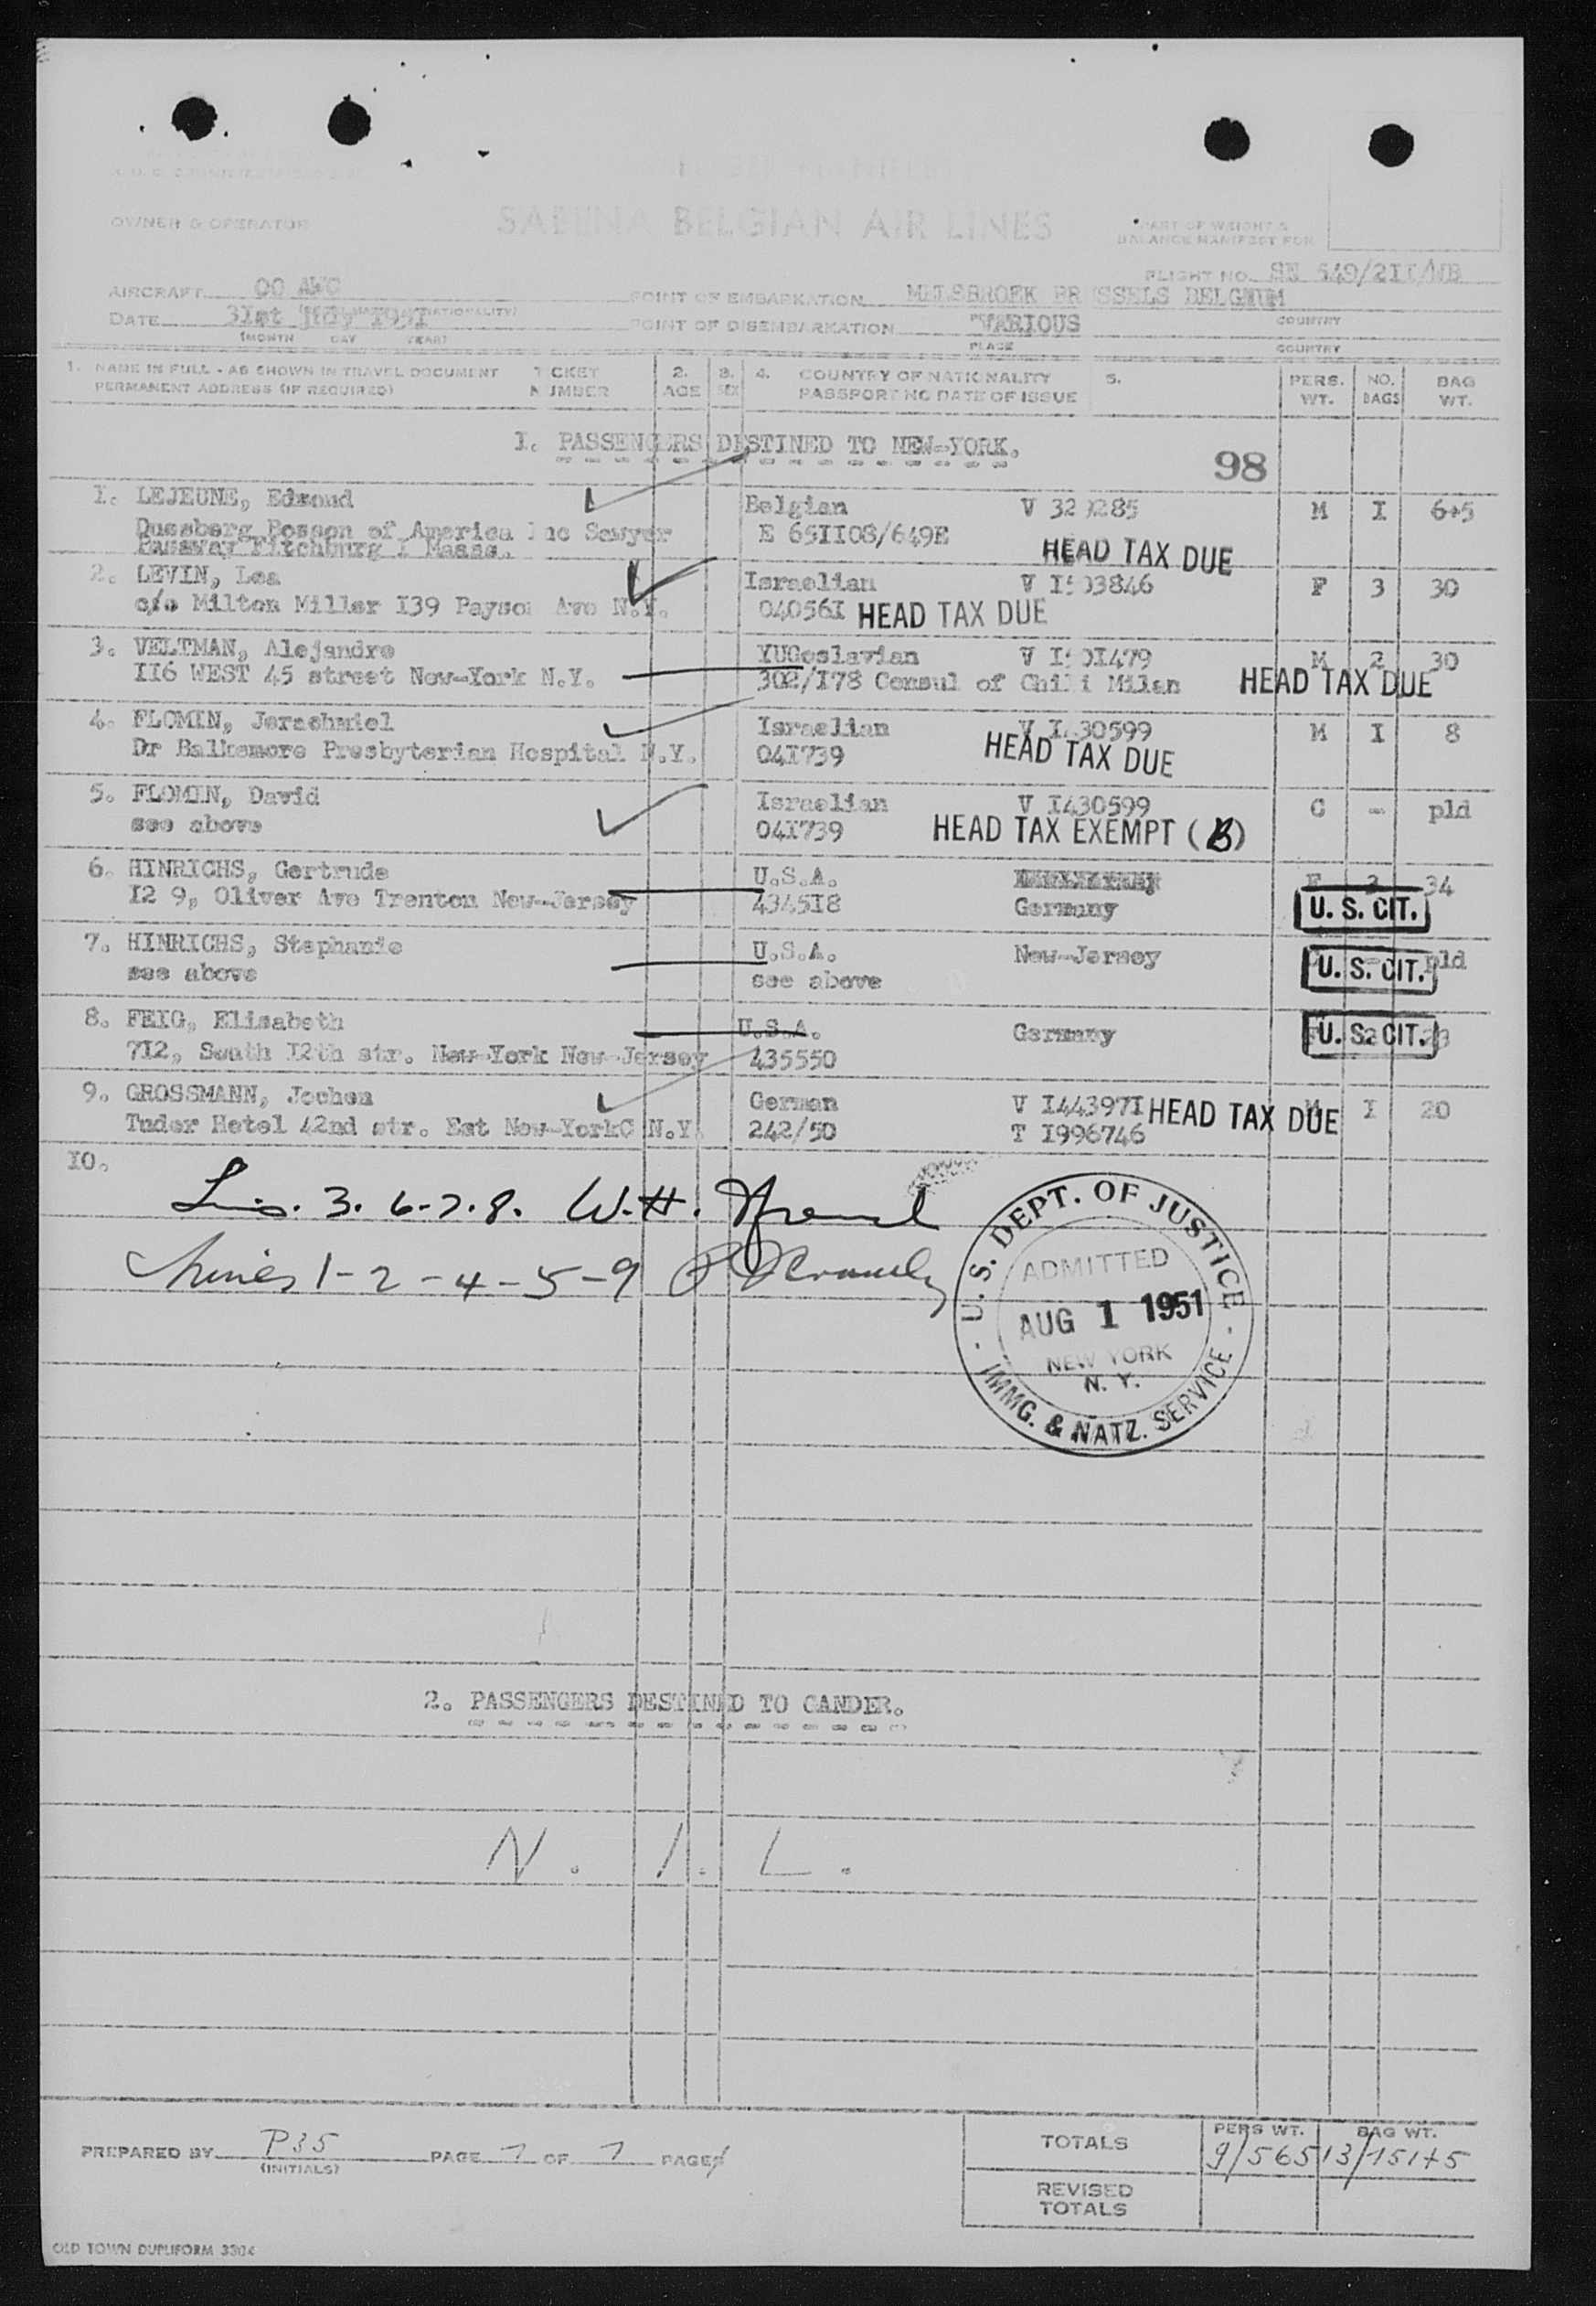 OWNER & OPERATOR
SABENA BELGIAN AIR LINES
PART OF WEIGHT &
BALANCE MANIFEST FOR
FLIGHT NO. SN 549/2II/WB
AIRCRAFT OO AWC
POINT OF EMBARKATION MELSBROEK BR SSELS BELGIUM
DATE 31st 1951
POINT OF DISEMBARKATION VARIOUS
COUNTRY
(MONTH DAY YEAR)
PLACE
COUNTRY
1. NAME IN FULL - AS SHOWN IN TRAVEL DOCUMENT T CKET 2. 3. 4. COUNTRY OF NATIONALITY 5. PERS. NO. BAG
PERMANENT ADDRESS (IF REQUIRED) N UMBER AGE SEX PASSPORT NO DATE OF ISSUE WT. BAGS WT.
1. PASSENGERS DESTINED TO NEW-YORK.
98
1. LEJEUNE, Edmond Belgian V 32 0285 M I 6+5
Duesberg Bosson of America Inc Sawyer E 65II08/649E
Passway Fitchburg Masss. HEAD TAX DUE
2. LEVIN, Lea Israelian V I503846 F 3 30
c/o Milton Miller I39 Payson Ave N.Y. 04056I HEAD TAX DUE
3. VELTMAN, Alejandro YUGoslavian V I50I479 M 2 30
II6 WEST 45 street New-York N.Y. 302/I78 Consul of Chili Milan HEAD TAX DUE
4. FLOMIN, Jerachmiel Israelian V I430599 M I 8
Dr Balkemore Presbyterian Hospital N.Y. 04I739 HEAD TAX DUE
5. FLOMIN, David Israelian V I430599 C - pld
see above 04I739 HEAD TAX EXEMPT (B)
6. HINRICHS, Gertrude U.S.A. F 2 34
I2 9, Oliver Ave Trenton New-Jersey 4345I8 Germany U. S. CIT.
7. HINRICHS, Stephanie U.S.A. New-Jersey pld
see above see above U. S. CIT.
8. FEIG, Elisabeth U.S.A. Germany U. S. CIT.
7I2, South I2th str. New-York New-Jersey 435550
9. GROSSMANN, Jochen German V I44397I HEAD TAX DUE M I 20
Tudor Hotel 42nd str. Est New-YorkC N.Y. 242/50 T I996746
IO.
Lin. 3. 6-7.8. W.H.
Lines 1-2-4-5-9
U.S. DEPT. OF JUSTICE
ADMITTED
AUG 1 1951
NEW YORK
N. Y.
IMMG. & NATZ. SERVICE
2. PASSENGERS DESTINED TO GANDER.
N. I. L.
TOTALS PERS WT. BAG WT.
9/565 13/151+5
PREPARED BY P35 PAGE 1 OF 1 PAGES
(INITIALS)
REVISED
TOTALS
OLD TOWN DUPLIFORM 3304